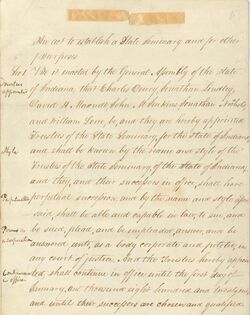 An act to establish a State Seminary, and for other
purposes
Sec 1 Be it enacted by the General Assembly of the state
of Indiana, that Charles Dewey, Jonathan Lindley,
David H. Maxwell, John M. Jenkins, Jonathan Nichols
and William Lowe, be, and they are hereby appointed
Trustees of the State Seminary, for the State of Indiana
Style and shall be known by the name and style of the
Trustees of the state seminary, of the state of Indiana;
and they, and their successors in office, shall have
Perpetuity perpetual succession, and by the name and style afore
said, shall be able and capable in law, to sue, and
Powers & be sued, plead, and be impleaded, answer, and be
answered unto, as a body corporate and politic, in
any court of justice. And the Trustees hereby appoint
Continuance ed shall continue in office until the first day of
in office January, one thousand eight hundred and
and until their successors are chosen and qualified.